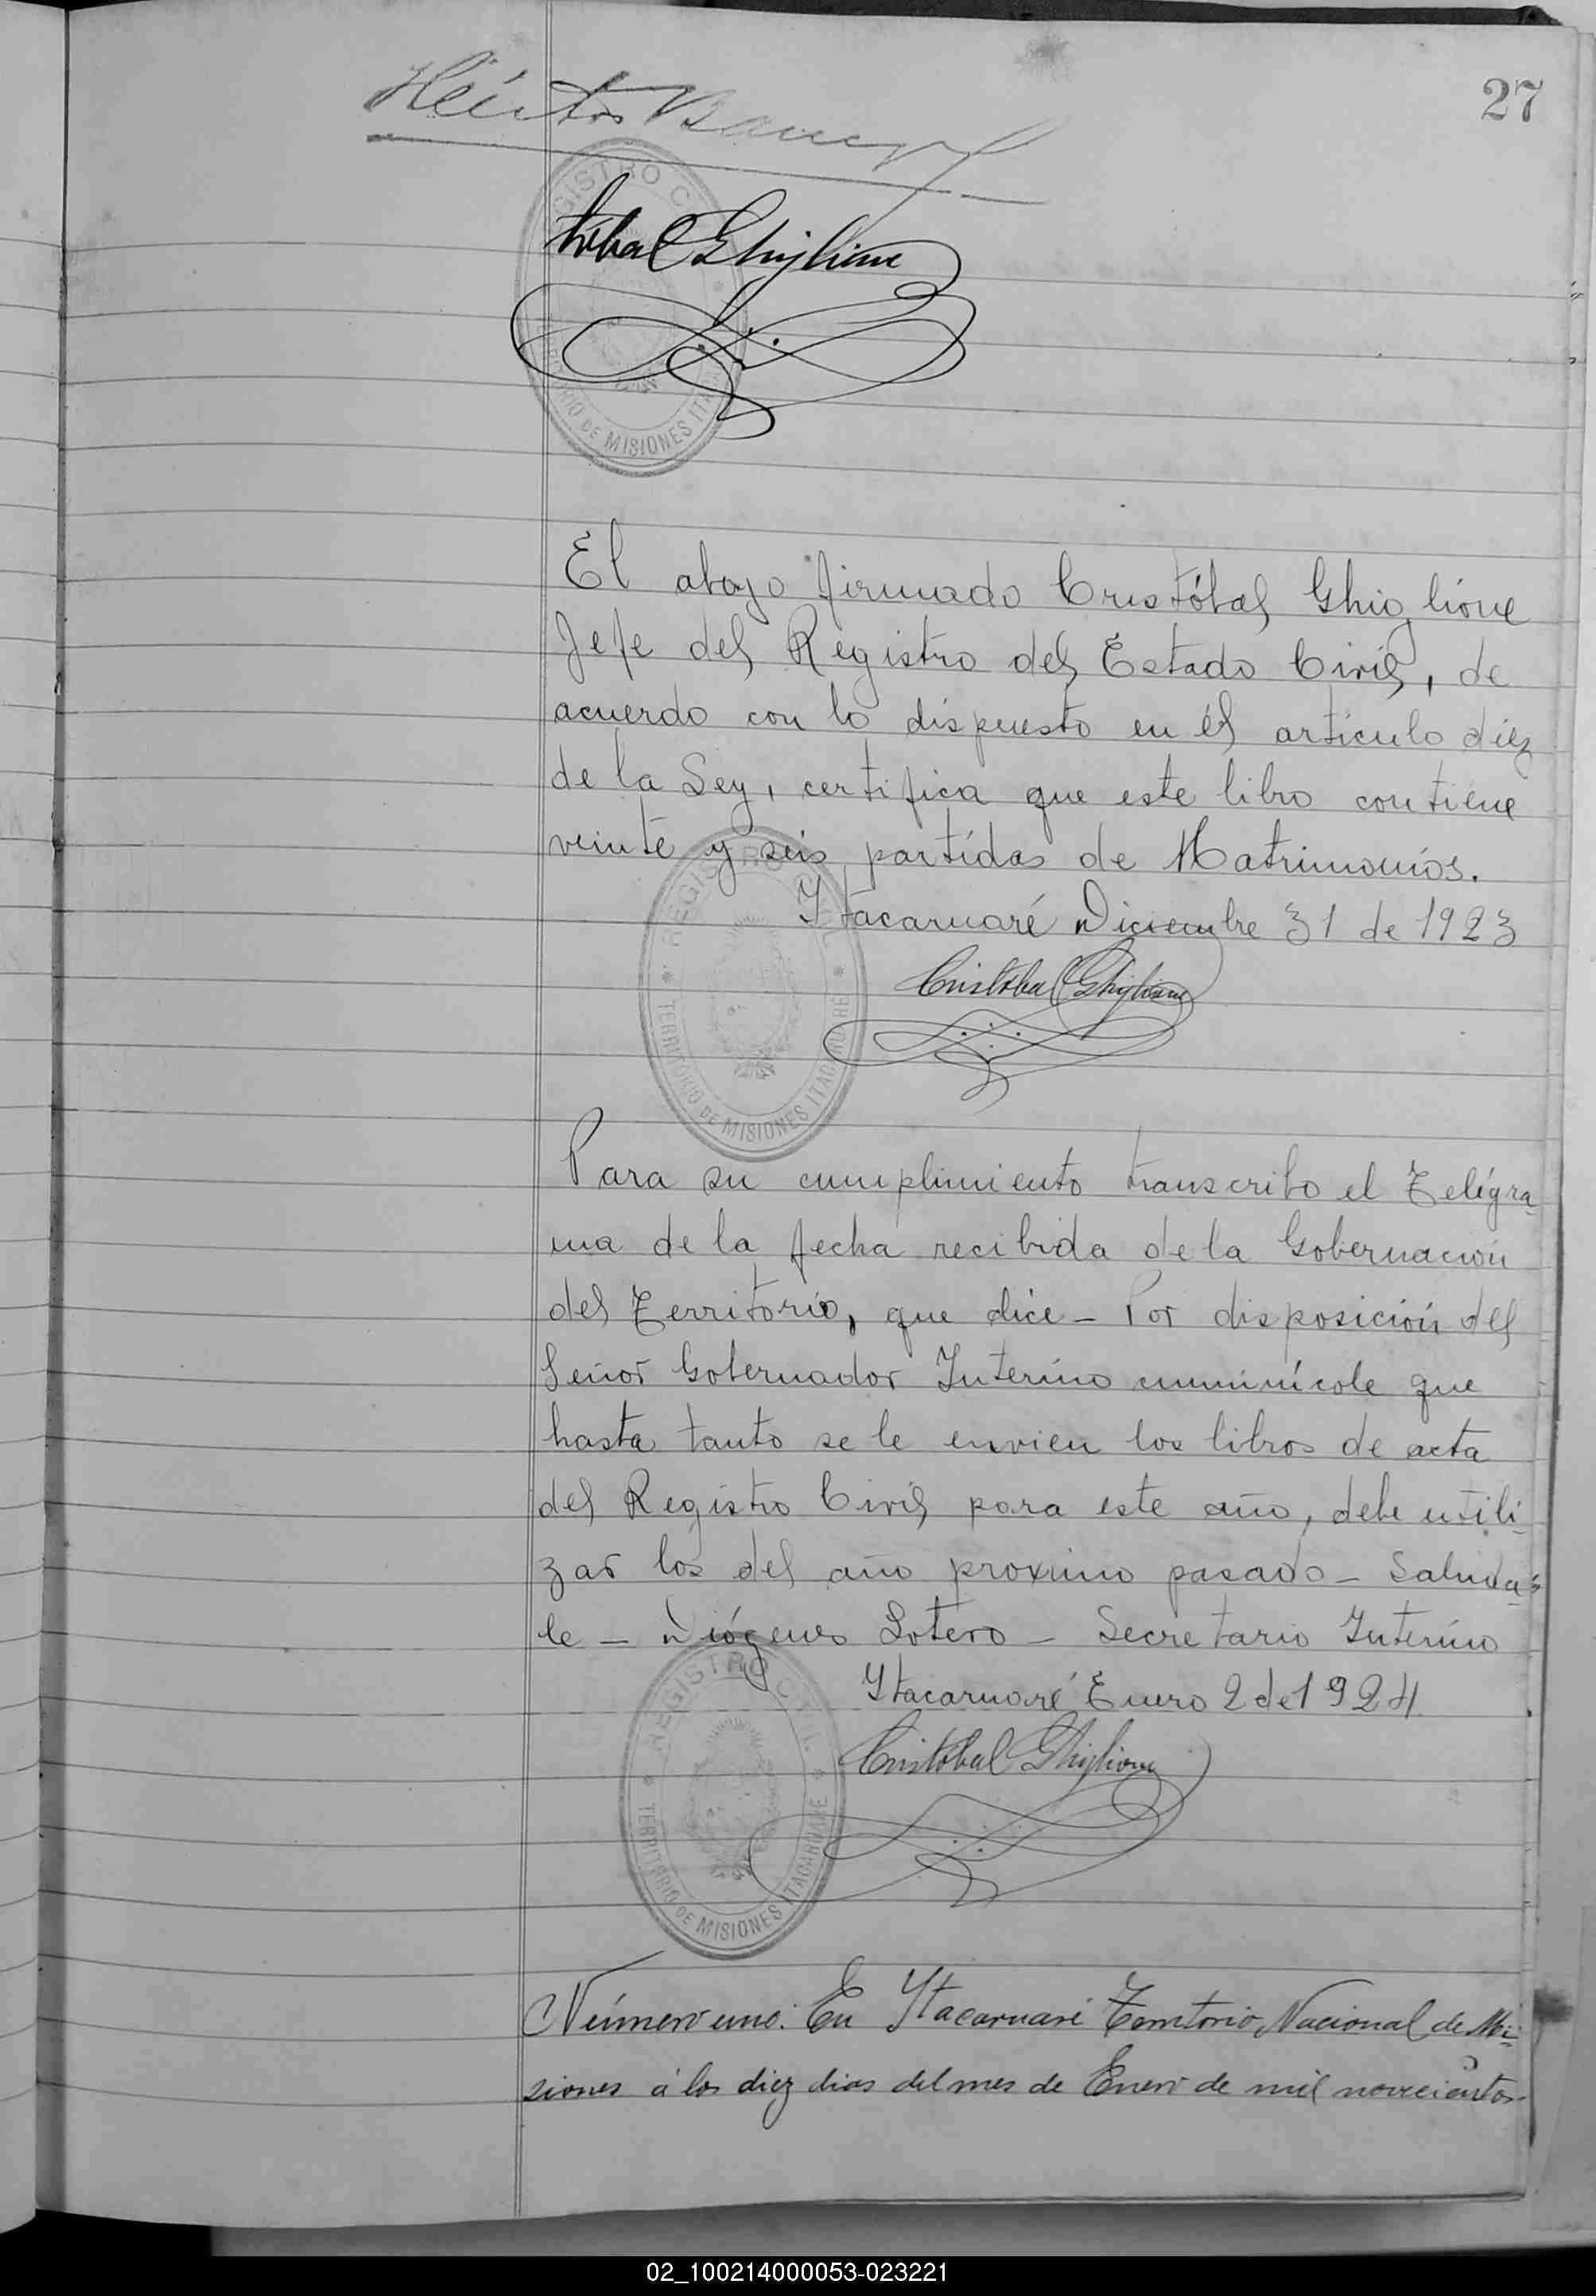 27
Héctor
tóbal Ghiglione
GISTRO C
RITORIO DE MISIONES ITA
El abajo firmado Cristóbal Ghiglione
Jefe del Registro del Estado Civil, de
acuerdo con lo dispuesto en él artículo diez
de la Ley, certifica que este libro contiene
veinte y seis partidas de Matrimonios.
Itacaruaré Diciembre 31 de 1923
Cristóbal Ghiglione
REGISTRO CIVIL
* TERRITORIO DE MISIONES ITACARUARE *
Para su cumplimiento transcribo el Telégra-
ma de la fecha recibida de la Gobernación
del Territorio, que dice - Por disposición del
Señor Gobernador Interino cumunícole que
hasta tanto se le envien los libros de acta
del Registro Civil para este año, debe utili-
zar los del año proximo pasado - Saluda-
le - Diógenes Sotero - Secretario Interino
Itacaruaré Enero 2 de 1924
Cristóbal Ghiglione
REGISTRO CIVIL
* TERRITORIO DE MISIONES ITACARUARE *
Número uno. En Itacaruaré Territorio Nacional de Mi-
siones á los diez dias del mes de Enero de mil novecientos
02_100214000053-023221